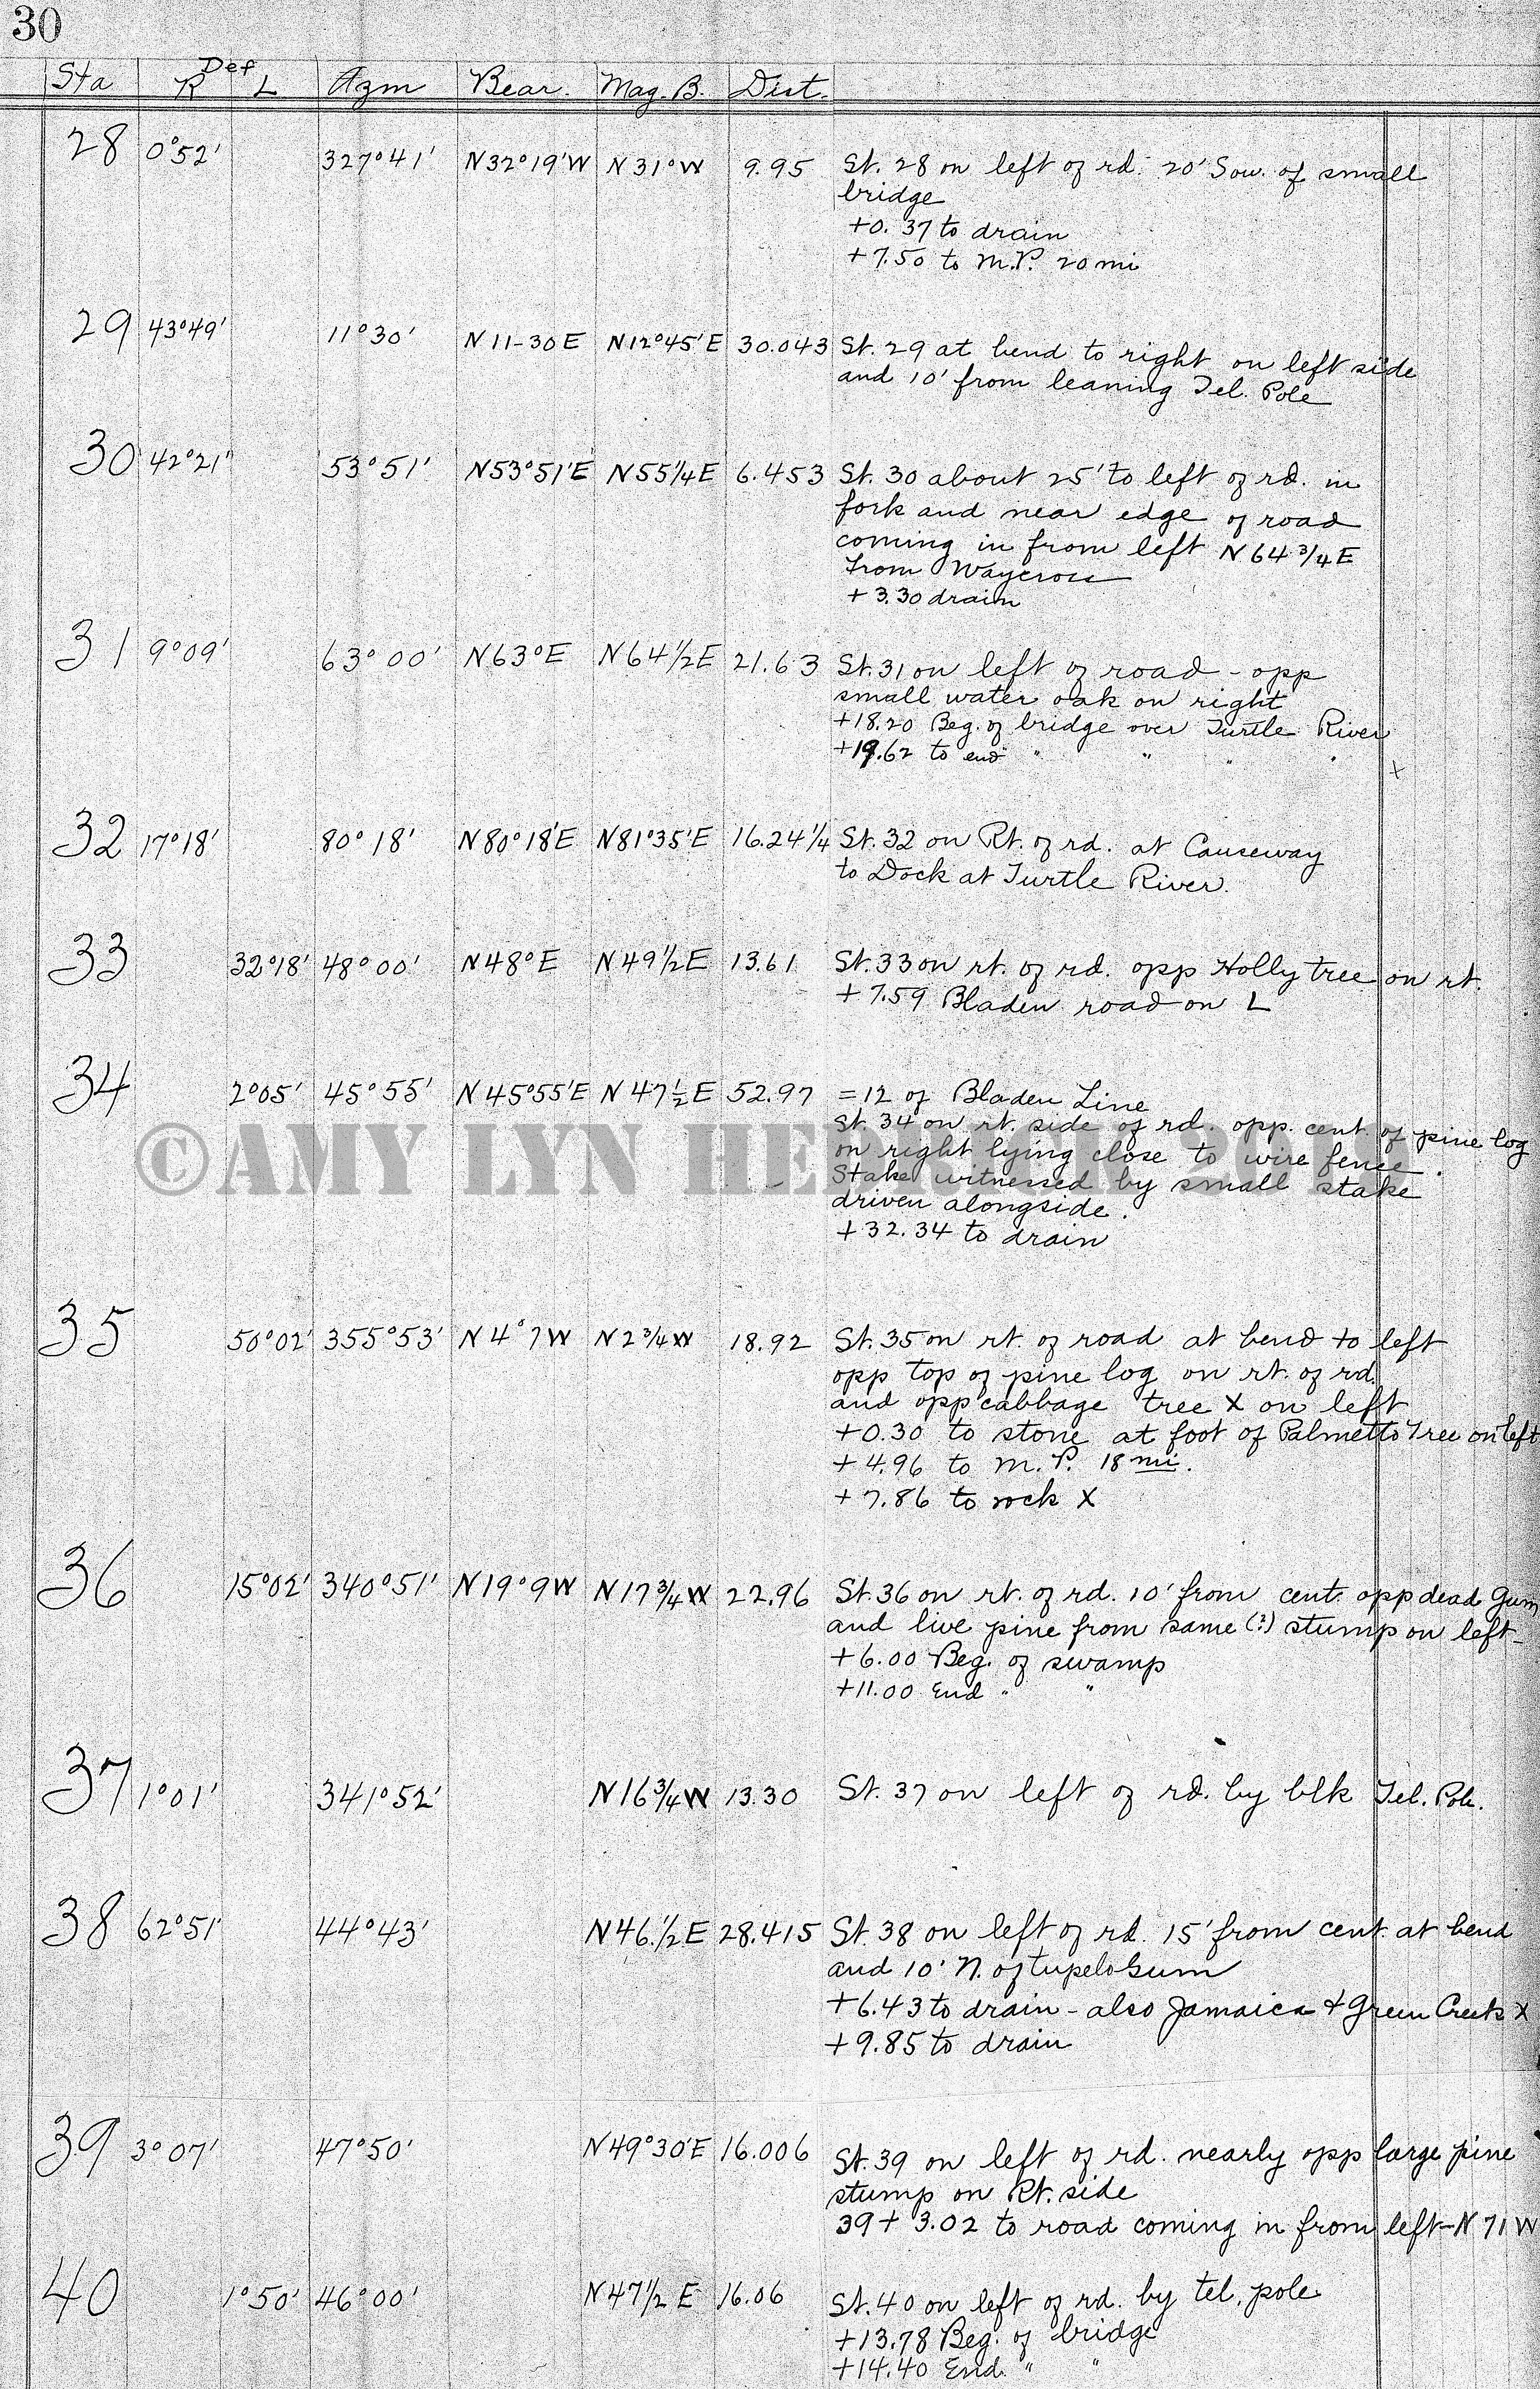 30
Sta Def R L Azm Bear. Mag. B. Dist.
28 0°52' 327°41' N32°19'W N31°W 9.95 St. 28 on left of rd. 20' Sow. of small
bridge
+0.37 to drain
+7.50 to M.P. 20 mi
29 43°49' 11°30' N11-30E N12°45'E 30.043 St. 29 at bend to right on left side
and 10' from leaning Tel. Pole
30 42°21' 53°51' N53°51'E N55¼E 6.453 St. 30 about 25' to left of rd. in
fork and near edge of road
coming in from left N64¾E
from Waycross
+3.30 drain
31 9°09' 63°00' N63°E N64½E 21.63 St. 31 on left of road - opp
small water oak on right
+18.20 Beg. of bridge over Turtle River
+19.62 to end " " " "
x
32 17°18' 80°18' N80°18'E N81°35'E 16.24¼ St. 32 on Rt. of rd. at Causeway
to Dock at Turtle River.
33 32°18' 48°00' N48°E N49½E 13.61 St. 33 on rt. of rd. opp Holly tree on rt.
+7.59 Bladen road on L
34 2°05' 45°55' N45°55'E N47½E 52.97 =12 of Bladen Line
St. 34 on rt. side of rd. opp. cent. of pine log
©AMY LYN HERRICK
on right lying close to wire fence.
Stake witnessed by small stake
driven alongside.
+32.34 to drain
35 50°02' 355°53' N4°7W N2¾W 18.92 St. 35 on rt. of road at bend to left
opp top of pine log on rt. of rd.
and opp cabbage tree X on left
+0.30 to stone at foot of Palmetto Tree on left
+4.96 to M.P. 18 mi.
+7.86 to rock X
36 15°02' 340°51' N19°9W N17¾W 22.96 St. 36 on rt. of rd. 10' from cent. opp dead Gum
and live pine from same (?) stump on left-
+6.00 Beg. of swamp
+11.00 End " "
37 1°01' 341°52' N16¾W 13.30 St. 37 on left of rd. by blk Tel. Pole.
38 62°51' 44°43' N46½E 28.415 St. 38 on left of rd. 15' from cent. at bend
and 10' N. of tupelo Gum
+6.43 to drain - also Jamaica + Green Creek X
+9.85 to drain
39 3°07' 47°50' N49°30'E 16.006 St. 39 on left of rd. nearly opp large pine
stump on Rt. side
39+3.02 to road coming in from left-N71W
40 1°50' 46°00' N47½E 16.06 St. 40 on left of rd. by tel. pole.
+13.78 Beg. of bridge
+14.40 End " "